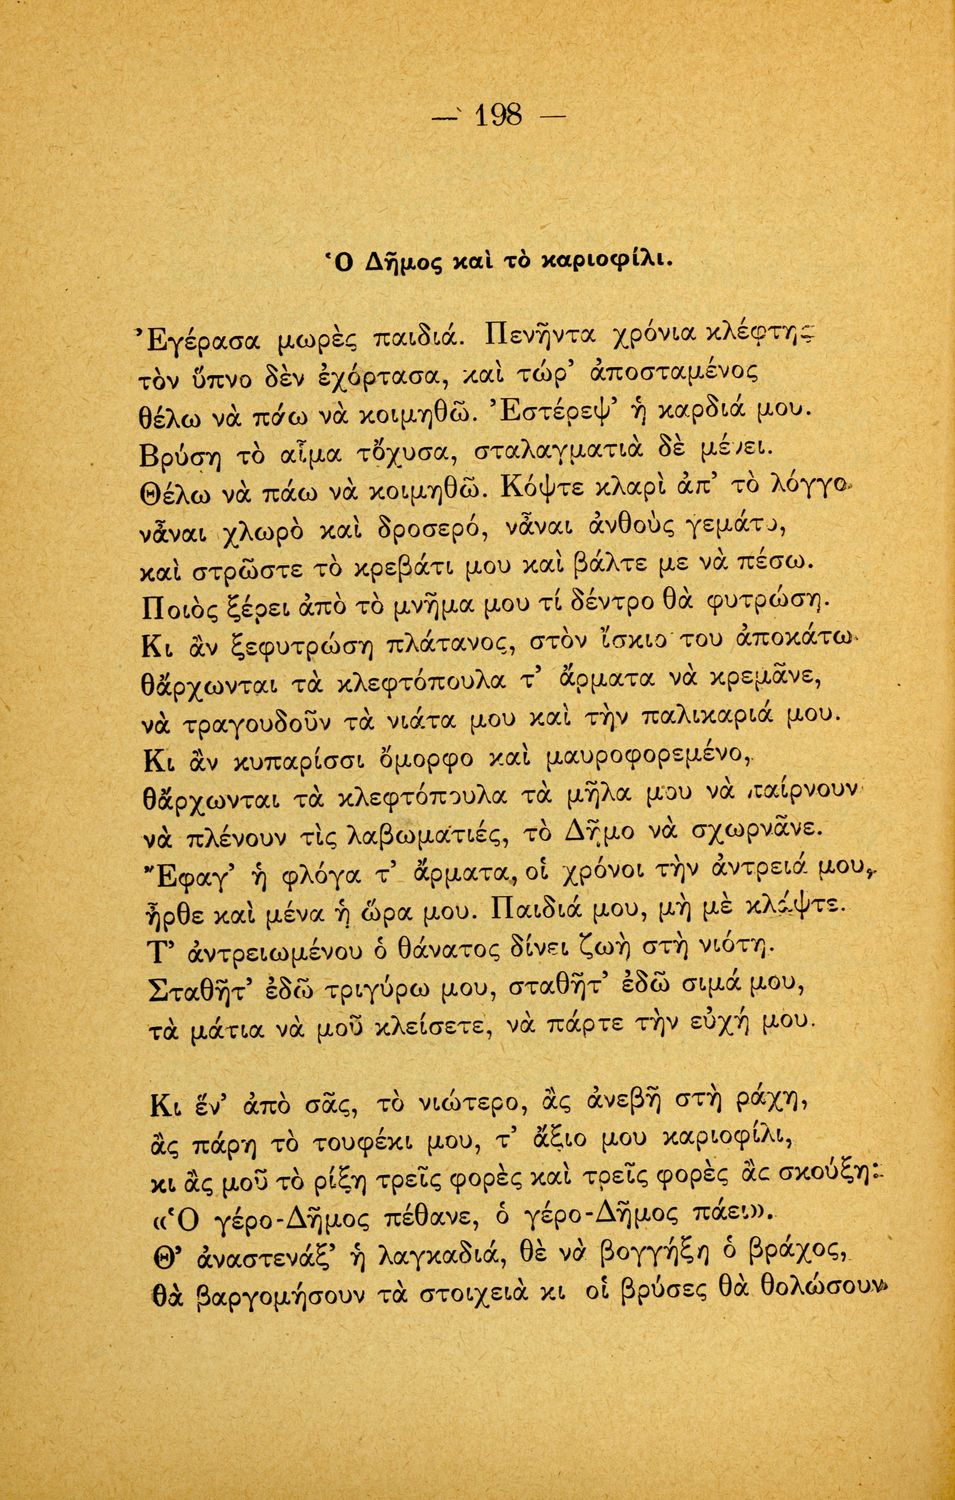 — 198 —
Ὁ Δῆμος καὶ τὸ καριοφίλι.
Ἐγέρασα μωρὲς παιδιά. Πενῆντα χρόνια κλέφτης
τὸν ὕπνο δὲν ἐχόρτασα, καὶ τώρ' ἀποσταμένος
θέλω νὰ πάω νὰ κοιμηθῶ. Ἐστέρεψ' ἡ καρδιά μου.
Βρύση τὸ αἷμα τὄχυσα, σταλαγματιὰ δὲ μένει.
Θέλω νὰ πάω νὰ κοιμηθῶ. Κόψτε κλαρὶ ἀπ' τὸ λόγγο
νἆναι χλωρὸ καὶ δροσερό, νἆναι ἀνθοὺς γεμάτο,
καὶ στρῶστε τὸ κρεβάτι μου καὶ βάλτε με νὰ πέσω.
Ποιὸς ξέρει ἀπὸ τὸ μνῆμα μου τί δέντρο θὰ φυτρώσῃ.
Κι ἂν ξεφυτρώσῃ πλάτανος, στὸν ἴσκιο του ἀποκάτω
θἄρχωνται τὰ κλεφτόπουλα τ' ἄρματα νὰ κρεμᾶνε,
νὰ τραγουδοῦν τὰ νιάτα μου καὶ τὴν παλικαριά μου.
Κι ἂν κυπαρίσσι ὄμορφο καὶ μαυροφορεμένο,
θἄρχωνται τὰ κλεφτόπουλα τὰ μῆλα μου νὰ παίρνουν
νὰ πλένουν τὶς λαβωματιές, τὸ Δῆμο νὰ σχωρνᾶνε.
Ἔφαγ' ἡ φλόγα τ' ἄρματα, οἱ χρόνοι τὴν ἀντρειά μου,
ἦρθε καὶ μένα ἡ ὥρα μου. Παιδιά μου, μὴ μὲ κλάψτε.
Τ' ἀντρειωμένου ὁ θάνατος δίνει ζωὴ στὴ νιότη.
Σταθῆτ' ἐδῶ τριγύρω μου, σταθῆτ' ἐδῶ σιμά μου,
τὰ μάτια νὰ μοῦ κλείσετε, νὰ πάρτε τὴν εὐχή μου.
Κι ἕν' ἀπὸ σᾶς, τὸ νιώτερο, ἂς ἀνεβῇ στὴ ράχη,
ἂς πάρῃ τὸ τουφέκι μου, τ' ἄξιο μου καριοφίλι,
κι ἂς μοῦ τὸ ρίξῃ τρεῖς φορὲς καὶ τρεῖς φορὲς ἂς σκούξῃ:
«Ὁ γέρο-Δῆμος πέθανε, ὁ γέρο-Δῆμος πάει».
Θ' ἀναστενάξ' ἡ λαγκαδιά, θὲ νὰ βογγήξῃ ὁ βράχος,
θὰ βαργομήσουν τὰ στοιχειὰ κι οἱ βρύσες θὰ θολώσουν